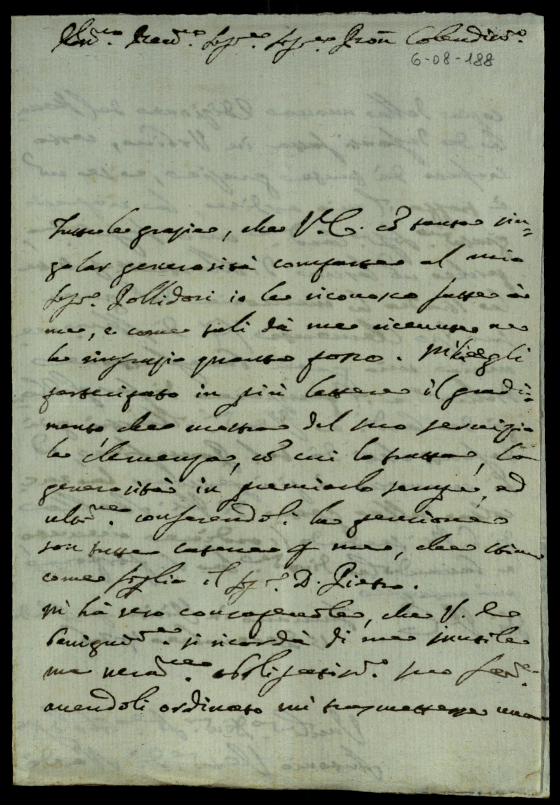 Ill.mo Rev.mo Sig.re Sig.re Pron Colendis.mo
6-08-188
Tutte le grazie, che V.E. cõ tanta sin=
golar generosità comparte al mio
Sig.re Pollidori io le riconosco fatte à
me, e come tali dà me ricevute ne
la ringrazio quanto posso. Mi hà egli
partecipato in più lettere il gradi=
mento che mostra del suo servizio
la clemenza, cõ cui lo tratta, la
generosità in premiarlo sempre, ed
ultim.e conferendoli la pensione
son tutte catene p me, che stimo
come figlio il Sig.r D. Pietro.
Mi hà reso consapevole, che V.E.
benignam.te si ricorda di me inutile
ma veram.te obbligatis.mo suo Ser.re
avendoli ordinato mi trasmettesse una